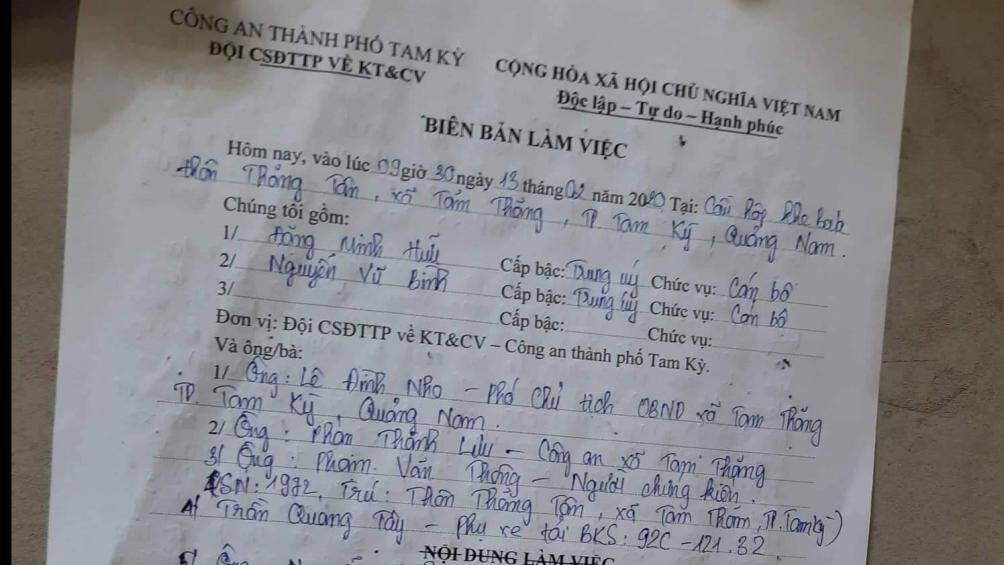 CÔNG AN THÀNH PHỐ TAM KỲ
ĐỘI CSĐTTP VỀ KT&CV
CỘNG HÒA XÃ HỘI CHỦ NGHĨA VIỆT NAM
Độc lập – Tự do – Hạnh phúc
BIÊN BẢN LÀM VIỆC
Hôm nay, vào lúc 09 giờ 30 ngày 13 tháng 02 năm 2020 Tại: Cầu
thôn Thăng Tân, xã Tam Thăng, TP. Tam Kỳ, Quảng Nam.
Chúng tôi gồm:
1/ Đặng Minh Hữu Cấp bậc: Trung úy Chức vụ: Cán bộ
2/ Nguyễn Vũ Bình Cấp bậc: Trung úy Chức vụ: Cán bộ
3/ Cấp bậc: Chức vụ:
Đơn vị: Đội CSĐTTP về KT&CV – Công an thành phố Tam Kỳ.
Và ông/bà:
1/ Ông: Lê Đình Nho – Phó Chủ tịch UBND xã Tam Thăng
TP. Tam Kỳ, Quảng Nam.
2/ Ông: Phan Thành Lưu – Công an xã Tam Thăng
3/ Ông: Phạm Văn Thống – Người chứng kiến.
SN: 1972, Trú: Thôn Thăng Tân, xã Tam Thăng, TP. Tam Kỳ)
4/ Trần Quang Tây – Phụ xe tải BKS: 92C – 121.32
NỘI DUNG LÀM VIỆC
5/ Ông